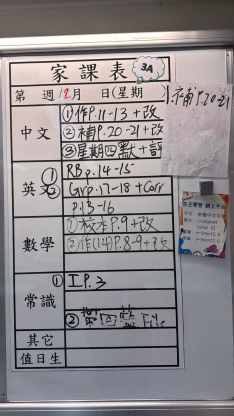 家課表 3A
第 週 12月 日(星期
1.補P.20-21
中文
①作P.11-13+改
②補P.20-21+改
③星期四默+評
英文
① RB p.14-15
② Gr p.17-18 + Corr
p.13-16
數學
①校本P.9+改
②作(14)P.8-9+改
常識
① 工P.3
② 帶四 File
其它
值日生
自主學習 網上平台